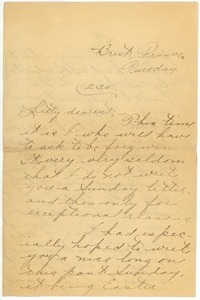 Tuesday
Letty dearest:
This time
it is I who will have
to ask to be forgiven.
very, very seldom
that I do not write
you a Sunday letter,
and then only for
exceptional reasons
I had espec-
ially hoped to write
you a nice long one
this past Sunday,
it being Easter